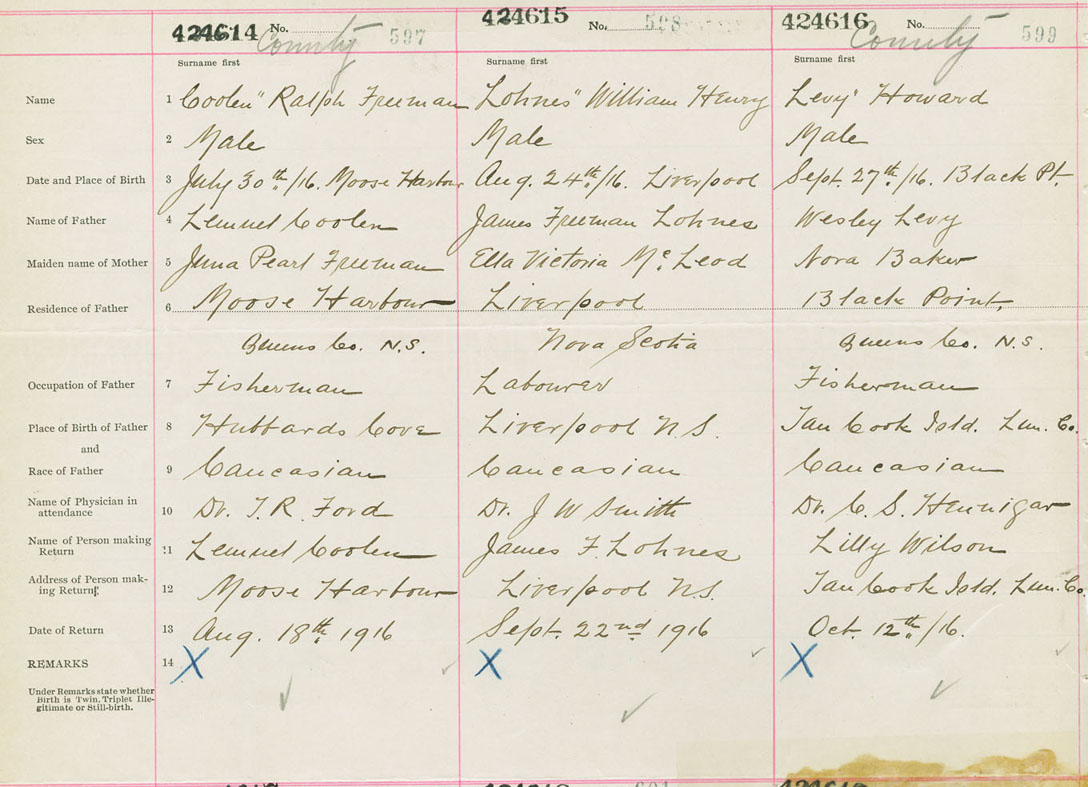 424614 No. 597 424615 No. 598 424616 No. 599
County County
Surname first Surname first Surname first
Name 1 Coolen" Ralph Freeman Lohnes" William Henry Levy" Howard
Sex 2 Male Male Male
Date and Place of Birth 3 July 30th/16. Moose Harbour Aug. 24th/16. Liverpool Sept. 27th/16. Black Pt.
Name of Father 4 Lemuel Coolen James Freeman Lohnes Wesley Levy
Maiden name of Mother 5 Juna Pearl Freeman Ella Victoria McLeod Nora Baker
Residence of Father 6 Moose Harbour Liverpool Black Point,
Queens Co. N.S. Nova Scotia Queens Co. N.S.
Occupation of Father 7 Fisherman Labourer Fisherman
Place of Birth of Father 8 Hubbards Cove Liverpool N.S. Tan Cook Isld. Lun. Co.
and
Race of Father 9 Caucasian Caucasian Caucasian
Name of Physician in
attendance 10 Dr. T. R. Ford Dr. J W Smith Dr. C. S. Hennigar
Name of Person making
Return 11 Lemuel Coolen James F. Lohnes Lilly Wilson
Address of Person mak-
ing Return 12 Moose Harbour Liverpool N.S. Tan Cook Isld. Lun. Co.
Date of Return 13 Aug. 18th 1916 Sept. 22nd 1916 Oct. 12th/16.
REMARKS 14 X X X
Under Remarks state whether
Birth is Twin, Triplet Ille-
gitimate or Still-birth.